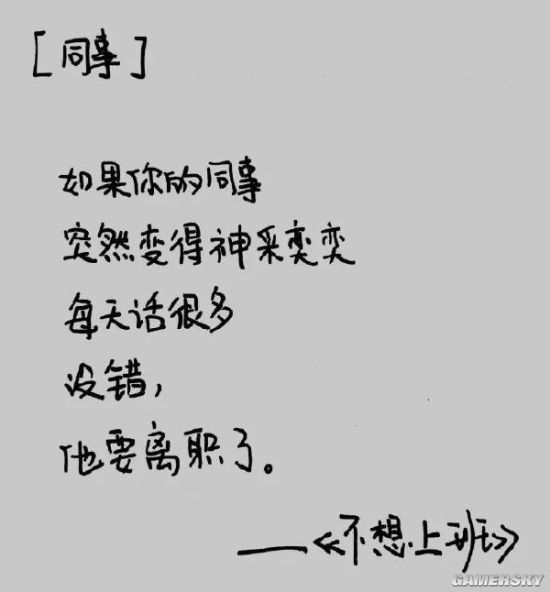 [同事]
如果你的同事
突然变得神采奕奕
每天话很多
没错，
他要离职了。
——《不想上班》
GAMERSKY